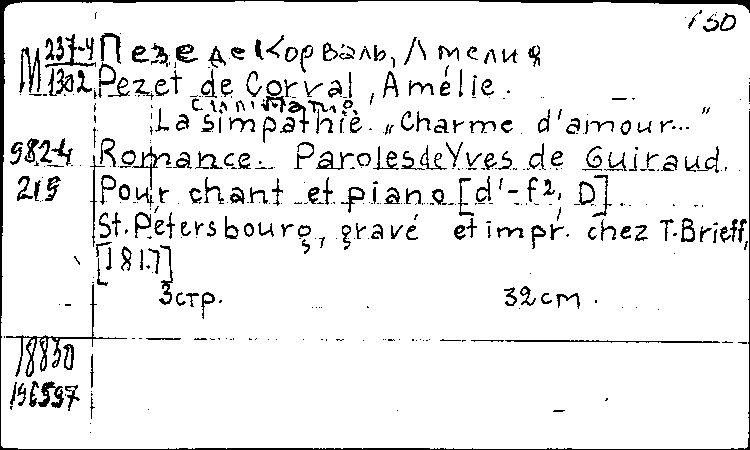 150
М 237-4 Пезе де Корваль, Амелия
1302 Pezet de Corval, Amélie.
La simpathiè. „Charme d'amour..."
9824 Romance. Paroles de Yves de Guiraud.
219 Pour chant et piano [d'-f², D]
St. Pétersbourg, gravé et impr. chez T. Brieff,
[1817]
3 стр. 32 cm.
18830
196597